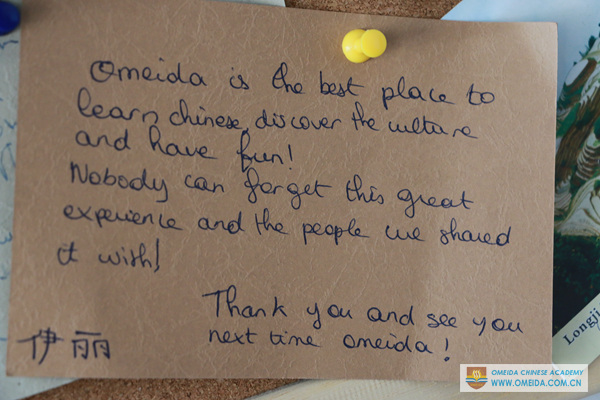 Omeida is the best place to
learn chinese, discover the culture
and have fun!
Nobody can forget this great
experience and the people we shared
it wish!
Thank you and see you
next time omeida!
伊丽
Longji
OMEIDA CHINESE ACADEMY
WWW.OMEIDA.COM.CN